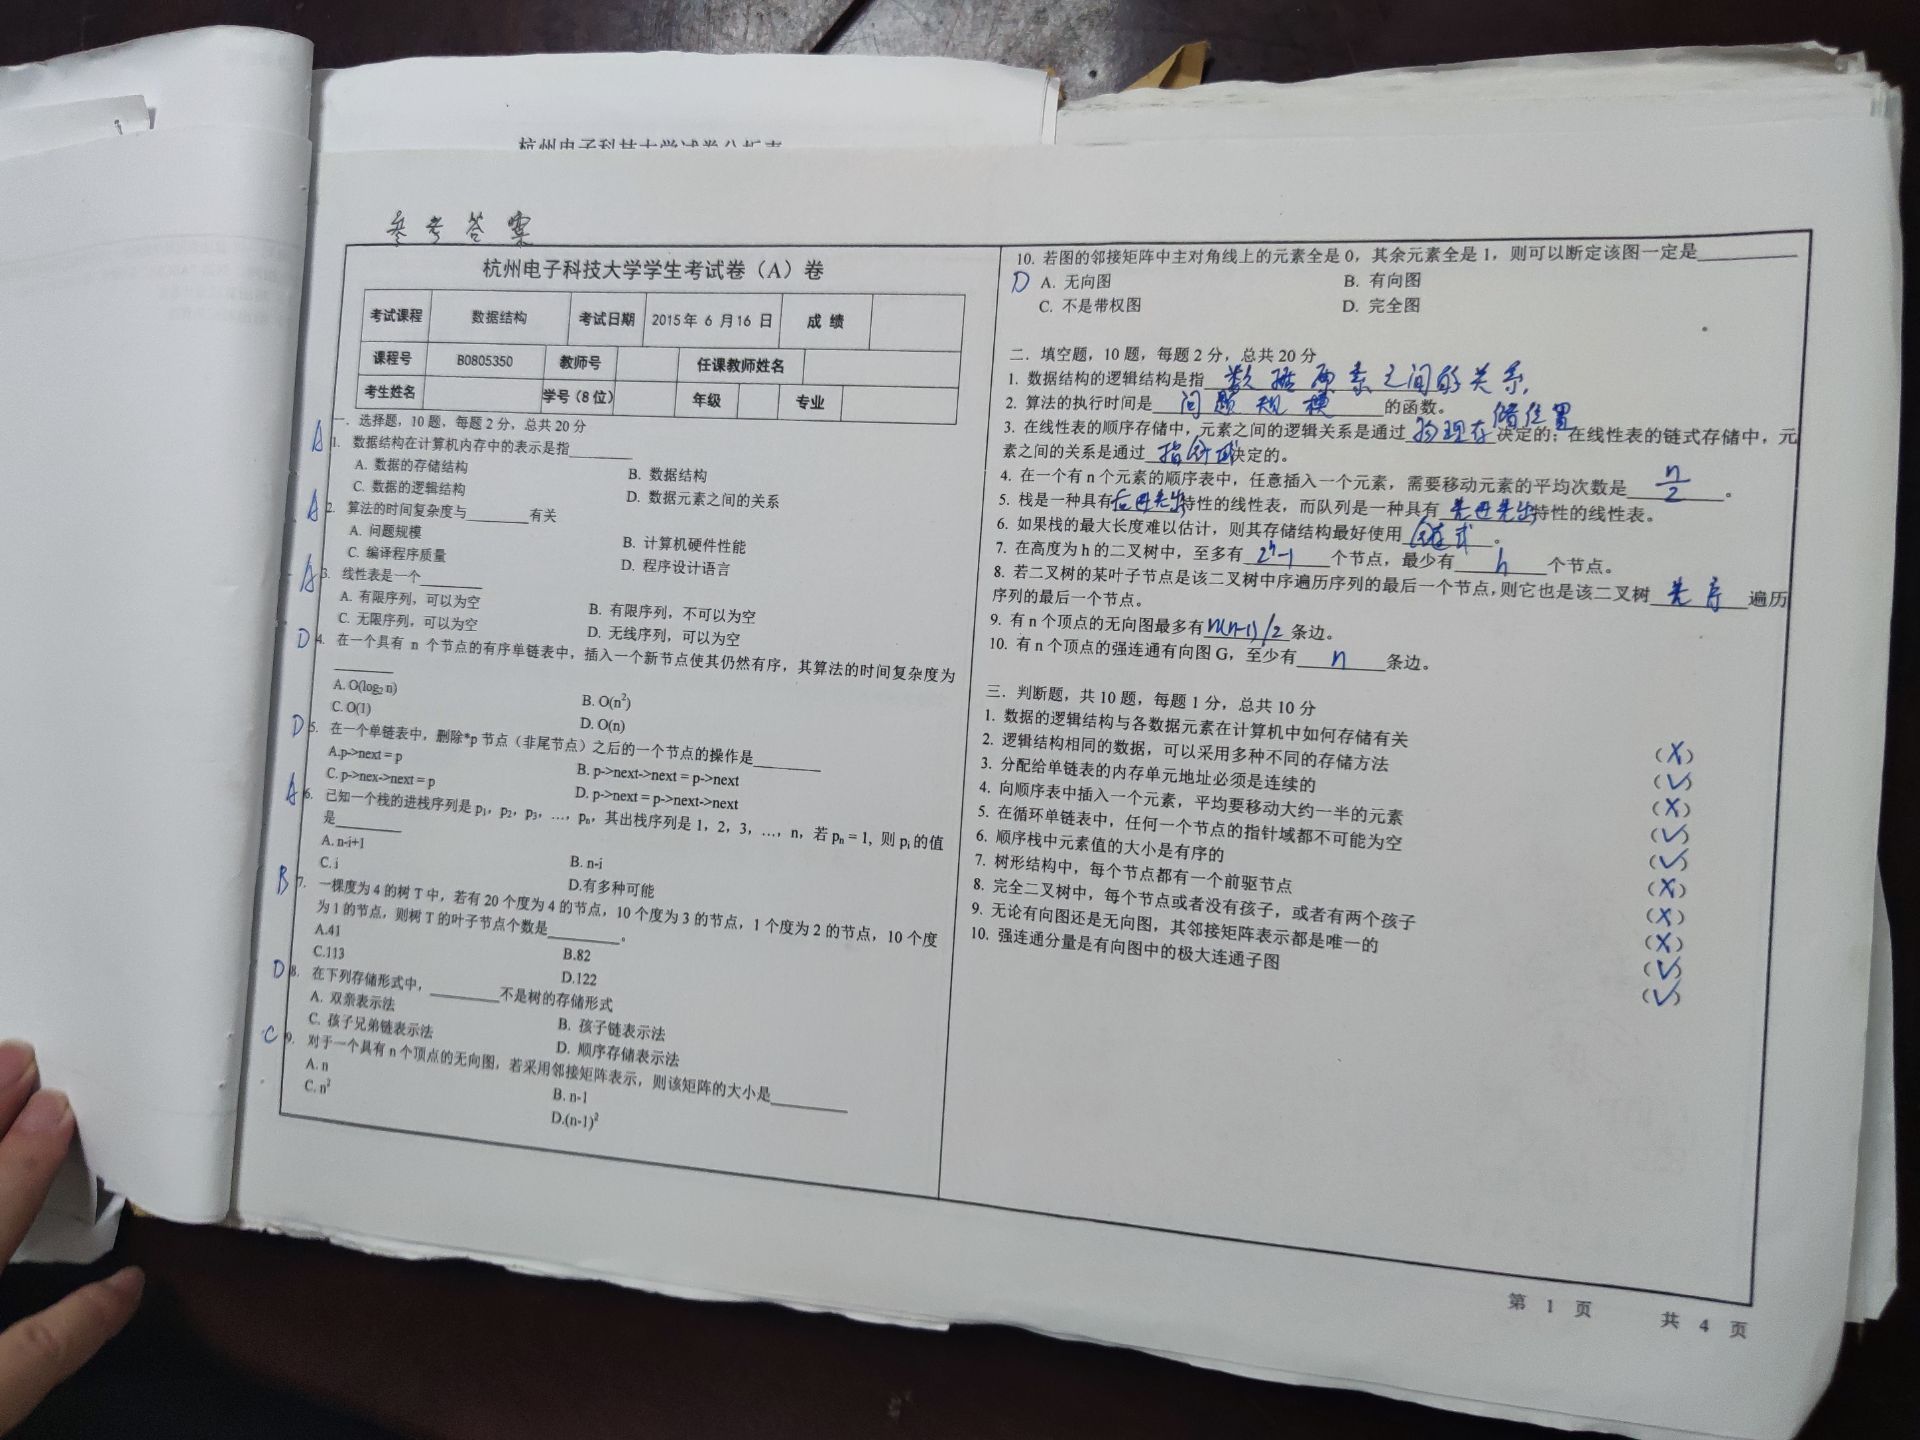 杭州电子科技大学试卷分析表
参考答案
杭州电子科技大学学生考试卷（A）卷
考试课程 数据结构 考试日期 2015年 6 月16 日 成 绩
课程号 B0805350 教师号 任课教师姓名
考生姓名 学号（8 位） 年级 专业
一．选择题，10 题，每题 2 分，总共 20 分
A 1. 数据结构在计算机内存中的表示是指________
A. 数据的存储结构 B. 数据结构
C. 数据的逻辑结构 D. 数据元素之间的关系
A 2. 算法的时间复杂度与________有关
A. 问题规模 B. 计算机硬件性能
C. 编译程序质量 D. 程序设计语言
A 3. 线性表是一个________
A. 有限序列，可以为空 B. 有限序列，不可以为空
C. 无限序列，可以为空 D. 无线序列，可以为空
D 4. 在一个具有 n 个节点的有序单链表中，插入一个新节点使其仍然有序，其算法的时间复杂度为
________
A. O(log₂ n) B. O(n²)
C. O(1) D. O(n)
D 5. 在一个单链表中，删除*p 节点（非尾节点）之后的一个节点的操作是________
A.p->next = p B. p->next->next = p->next
C. p->nex->next = p D. p->next = p->next->next
A 6. 已知一个栈的进栈序列是 p₁，p₂，p₃，…，pₙ，其出栈序列是 1，2，3，…，n，若 pₙ = 1，则 pᵢ 的值
是________
A. n-i+1 B. n-i
C. i D.有多种可能
B 7. 一棵度为 4 的树 T 中，若有 20 个度为 4 的节点，10 个度为 3 的节点，1 个度为 2 的节点，10 个度
为 1 的节点，则树 T 的叶子节点个数是________。
A.41 B.82
C.113 D.122
D 8. 在下列存储形式中，________不是树的存储形式
A. 双亲表示法 B. 孩子链表示法
C. 孩子兄弟链表示法 D. 顺序存储表示法
C 9. 对于一个具有 n 个顶点的无向图，若采用邻接矩阵表示，则该矩阵的大小是________
A. n B. n-1
C. n² D.(n-1)²
10. 若图的邻接矩阵中主对角线上的元素全是 0，其余元素全是 1，则可以断定该图一定是________
D A. 无向图 B. 有向图
C. 不是带权图 D. 完全图
二．填空题，10 题，每题 2 分，总共 20 分
1. 数据结构的逻辑结构是指 数据元素之间的关系.
2. 算法的执行时间是 问题规模 的函数。
3. 在线性表的顺序存储中，元素之间的逻辑关系是通过 物理存储位置 决定的；在线性表的链式存储中，元
素之间的关系是通过 指针域 决定的。
4. 在一个有 n 个元素的顺序表中，任意插入一个元素，需要移动元素的平均次数是 n/2 。
5. 栈是一种具有 后进先出 特性的线性表，而队列是一种具有 先进先出 特性的线性表。
6. 如果栈的最大长度难以估计，则其存储结构最好使用 链式 。
7. 在高度为 h 的二叉树中，至多有 2ʰ-1 个节点，最少有 h 个节点。
8. 若二叉树的某叶子节点是该二叉树中序遍历序列的最后一个节点，则它也是该二叉树 先序 遍历
序列的最后一个节点。
9. 有 n 个顶点的无向图最多有 n(n-1)/2 条边。
10. 有 n 个顶点的强连通有向图 G，至少有 n 条边。
三．判断题，共 10 题，每题 1 分，总共 10 分
1. 数据的逻辑结构与各数据元素在计算机中如何存储有关 (X)
2. 逻辑结构相同的数据，可以采用多种不同的存储方法 (✓)
3. 分配给单链表的内存单元地址必须是连续的 (X)
4. 向顺序表中插入一个元素，平均要移动大约一半的元素 (✓)
5. 在循环单链表中，任何一个节点的指针域都不可能为空 (✓)
6. 顺序栈中元素值的大小是有序的 (X)
7. 树形结构中，每个节点都有一个前驱节点 (X)
8. 完全二叉树中，每个节点或者没有孩子，或者有两个孩子 (X)
9. 无论有向图还是无向图，其邻接矩阵表示都是唯一的 (✓)
10. 强连通分量是有向图中的极大连通子图 (✓)
第 1 页 共 4 页